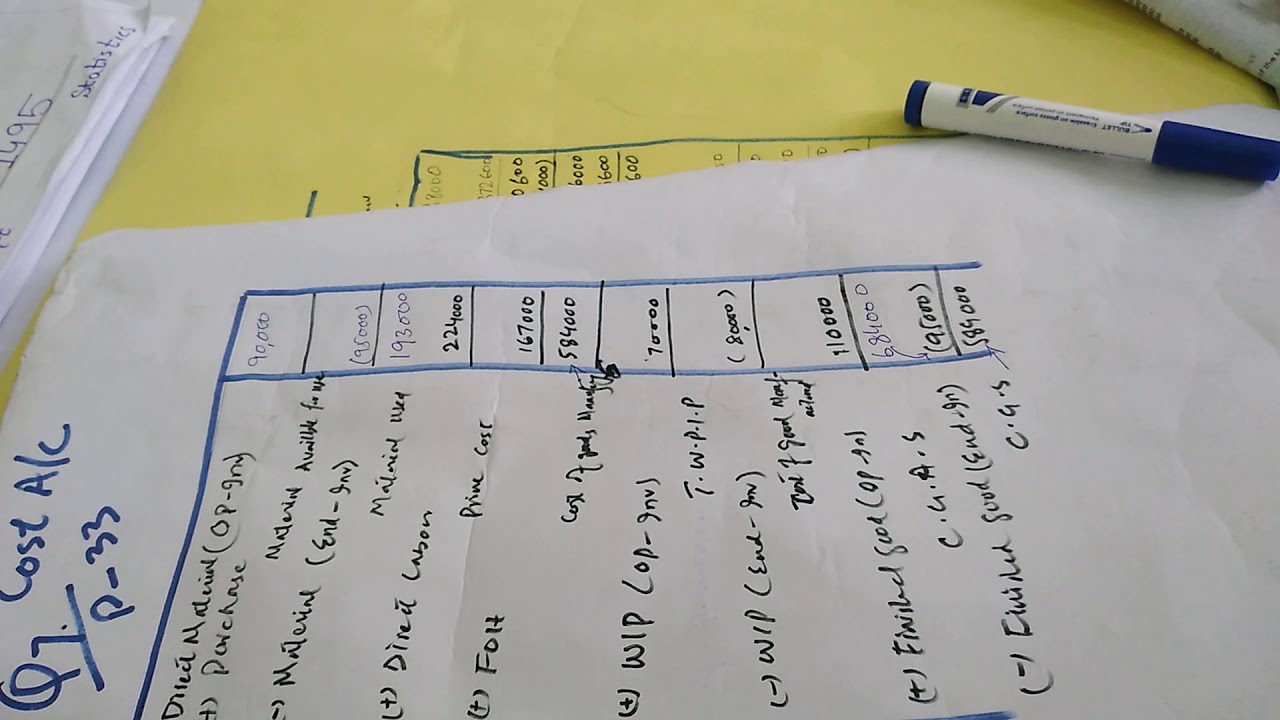 Statistics
1495
Q7. Cost A/c
P-33
Direct Material (OP-Inv) 90,000
(+) Purchase
Material Available for use
(-) Material (End-Inv) (95000)
Material Used 193000
(+) Direct Labour 224000
Prime Cost
(+) FOH 167000
Cost of goods 584000
(+) WIP (OP-Inv) 70000
T.W.P.I.P
(-) WIP (End-Inv) (80000)
Cost of good
(+) Finished good (OP-In) 110000
C.G.A.S 684000
(-) Finished good (End-In) (95000)
C.G.S 584000
8000
372600
0600
000)
6000
600
600
BULLET
TIP